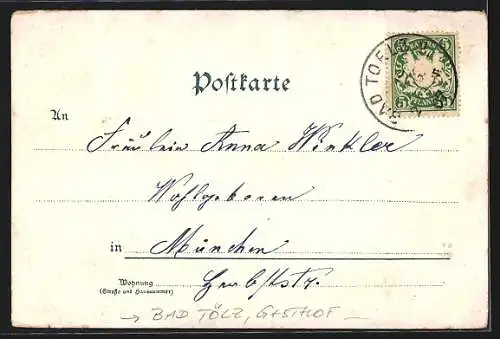 BAD TOELZ
5
Postkarte
An
Fräulein Anna Winkler
Wohlgeboren
in München
Wohnung
(Straße und Hausnummer)
Herbststr.
→ BAD TÖLZ, GASTHOF —